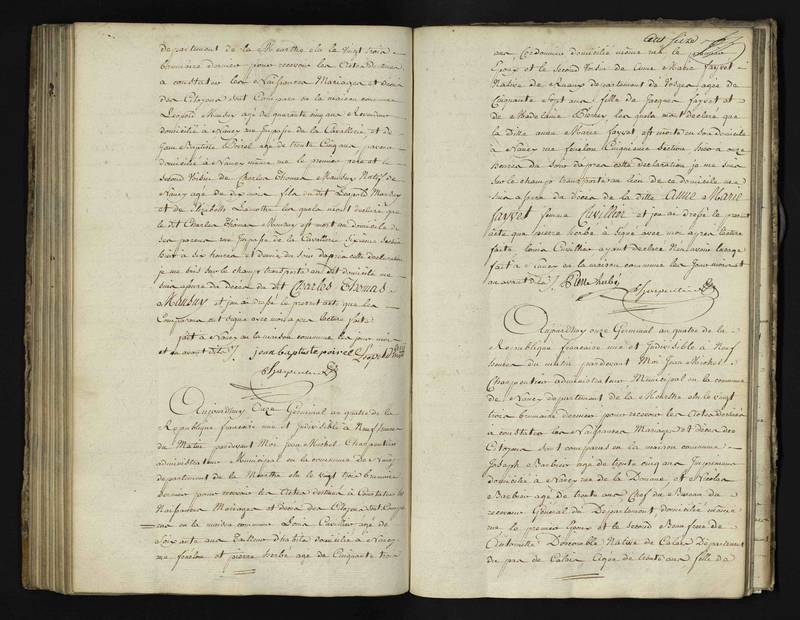 departement de la Meurthe elu le vingt trois
brumaire dernier pour recevoir les Actes destines
a constater les Naissances Mariages et deces
des Citoyens sont Comparus en la maison commune
Leopold Mausuy age de quarante cinq ans
domicilié a Nancy rue Impasse de la Cavallerie et de
Jean Baptiste Poirel age de trente Cinq ans
domicilié à Nancy même rue le premier pere et le
second Voisin de Charles Thomas Mausuy Natif de
Nancy age de dix mois fils du dit Leopold Mausuy
et de Elizabeth Lamothe les quels m'ont declaré que
le dit Charles Thomas Mausuy est mort au domicile de
ses pere rue Impasse de la Cavallerie Sixieme Section
hier a six heures et demie du soir d'apres cette declaration
je me suis sur le champ transporté au dit domicile me
suis assuré du deces du dit Charles Thomas
Mausuy et j'ai dressé le present acte que les
Comparans ont signé avec moi apres lecture faite
fait a Nancy en la maison commune les jour mois
et an avant dits. jean baptiste poirel Leopold
Charpentier
Aujourdhuy Onze Germinal an quatre de la
Republique francaise une et indivisible à Neuf heures
du Matin pardevant Moi Jean Michel Charpentier
administrateur Municipal en la commune De Nancy
departement de la Meurthe elu le vingt trois brumaire
dernier pour recevoir les Actes destinés à Constater les
Naissances Mariages et deces des Citoyens sont Compa
rus en la maison commune Louis Cuvillier agé de
soixante ans Tailleur d'habits domicilié à Nancy
rue fenelon et pierre herbé age de Cinquante trois
cent seize
ans Cordonnier domicilié même rue le premier
Epoux et le second Voisin de Anne Marie Fayvet
Native de departement de Vosges agée de
Cinquante sept ans fille de Jacques fayvet et
de Madelaine les quels m'ont declaré que
la Ditte anne Marie fayvet est morte en son domicile
à Nancy rue fenelon Cinquieme Section hier a onze
heures du soir d'apres cette declaration je me suis
sur le champ transporté au lieu de ce domicile me
suis assuré du deces de la ditte Anne Marie
fayvet femme Cuvillier et j'ai dressé le present
acte que pierre herbé à signé avec moi apres lecture
faite Louis Cuvillier ayant declaré N'en avoir l'usage
fait a Nancy en la maison commune les jour mois et
an avant dits. Pierre herbé
Charpentier
Aujourdhuy onze Germinal an quatre de la
Republique francaise une et indivisible à Neuf
heures du matin pardevant Moi Jean Michel
Charpentier administrateur Municipal en la commune
de Nancy departement de la Meurthe elu le vingt
trois brumaire dernier pour recevoir les Actes destinés
a constater les Naissances Mariages et deces des
Citoyens sont comparus en la maison commune
Joseph Barbeur age de trente cinq ans Imprimeur
domicilié a Nancy rue de la Douane, et Nicolas
Barbeur agé de trente ans Chef du Bureau du
receveur General du Departement, domicilié même
rue le premier Epoux et le second Beau frere de
Antoinette Native de Calais Departement
du pas de Calais agée de trente ans fille de